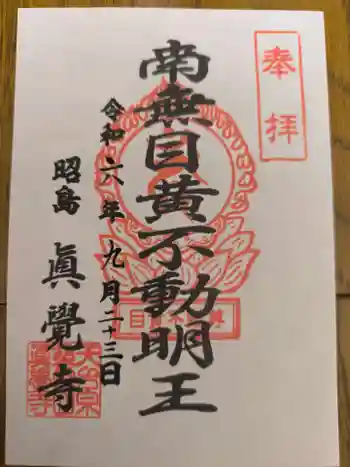 奉拝
南無目黄不動明王
令和六年九月二十三日
昭島
眞覺寺